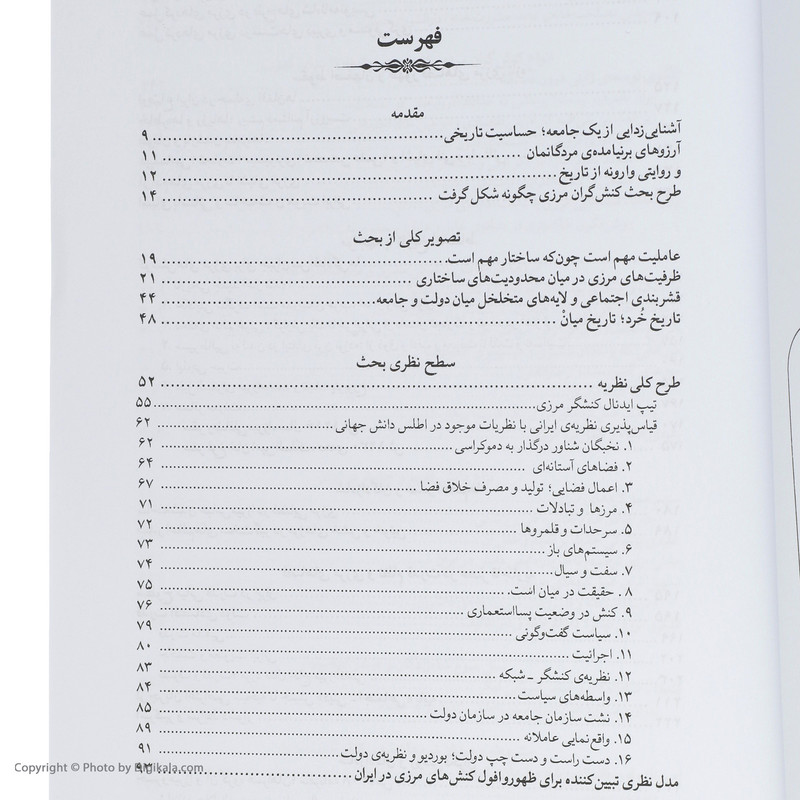 فهرست
مقدمه
آشنایی‌زدایی از یک جامعه؛ حساسیت تاریخی ۹
آرزوهای برنیامده‌ی مردگانمان ۱۱
و روایتی وارونه از تاریخ ۱۲
طرح بحث کنش‌گران مرزی چگونه شکل گرفت ۱۴
تصویر کلی از بحث
عاملیت مهم است چون‌که ساختار مهم است. ۱۹
ظرفیت‌های مرزی در میان محدودیت‌های ساختاری ۲۱
قشربندی اجتماعی و لایه‌های متخلخل میان دولت و جامعه ۴۴
تاریخ خُرد؛ تاریخ میانْ ۴۸
سطح نظری بحث
طرح کلی نظریه ۵۲
تیپ ایدئال کنشگر مرزی ۵۵
قیاس‌پذیری نظریه‌ی ایرانی با نظریات موجود در اطلس دانش جهانی ۶۲
۱. نخبگان شناور درگذار به دموکراسی ۶۲
۲. فضاهای آستانه‌ای ۶۴
۳. اعمال فضایی؛ تولید و مصرف خلاق فضا ۶۷
۴. مرزها و تبادلات ۷۱
۵. سرحدات و قلمروها ۷۲
۶. سیستم‌های باز ۷۳
۷. سفت و سیال ۷۴
۸. حقیقت در میان است. ۷۵
۹. کنش در وضعیت پسااستعماری ۷۶
۱۰. سیاست گفت‌وگونی ۷۹
۱۱. اجرائیت ۸۰
۱۲. نظریه‌ی کنشگر ـ شبکه ۸۳
۱۳. واسطه‌های سیاست ۸۴
۱۴. نشت سازمان جامعه در سازمان دولت ۸۵
۱۵. واقع‌نمایی عاملانه ۸۹
۱۶. دست راست و دست چپ دولت؛ بوردیو و نظریه‌ی دولت ۹۱
مدل نظری تبیین‌کننده برای ظهور و افول کنش‌های مرزی در ایران ۹۳
Copyright © Photo by Digikala.com